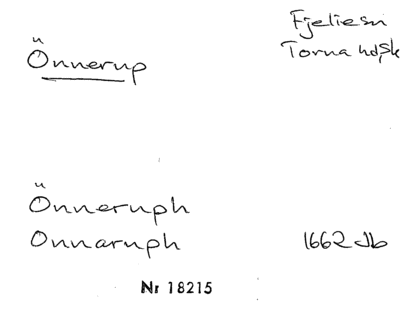 Önnerup
Fjeliesn
Torna hd, Sk
Önneruph
Onnaruph 1662 Jb
Nr 18215